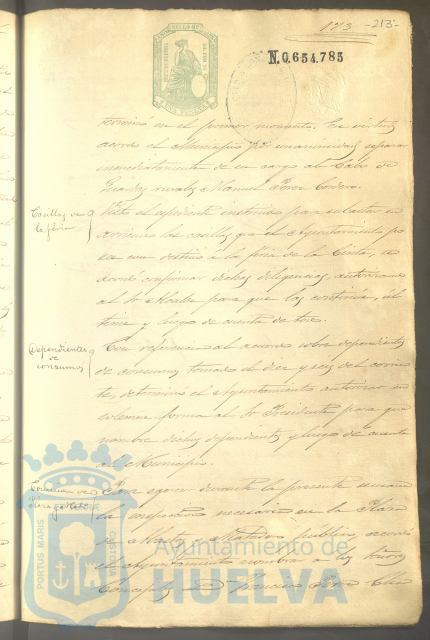 173 -213-
N.0.654.785
terminó en el primer momento. En virtud
acordó el Municipio por unanimidad separar
inmediatamente de su cargo al Cabo de
Guardas rurales Manuel Perez Cordero.
Casillas de la féria
Visto el espediente instruido para subastar en
arriendo las casillas que el Ayuntamiento po
see con destino á la féria de la Cinta, se
acordó confirmar dichas diligencias, autorizando
al Sr Alcalde para que las continúe, ul
time y luego de cuenta de
Dependientes de consumos
Con referencia al acuerdo sobre dependientes
de consumos tomado el diez y seis del corrien
te, determinó el Ayuntamiento autorizar en
solemne forma al Sr Presidente para que
nombre dichos dependientes y luego de cuenta
al Municipio.
Para egercer durante la presente semana
la inspeccion necesaria en la Plaza
de Abastos y Matadero público, acordó
el Ayuntamiento nombrar a los Señores
Concejales D. Francisco
PORTUS MARIS
Ayuntamiento de
HUELVA